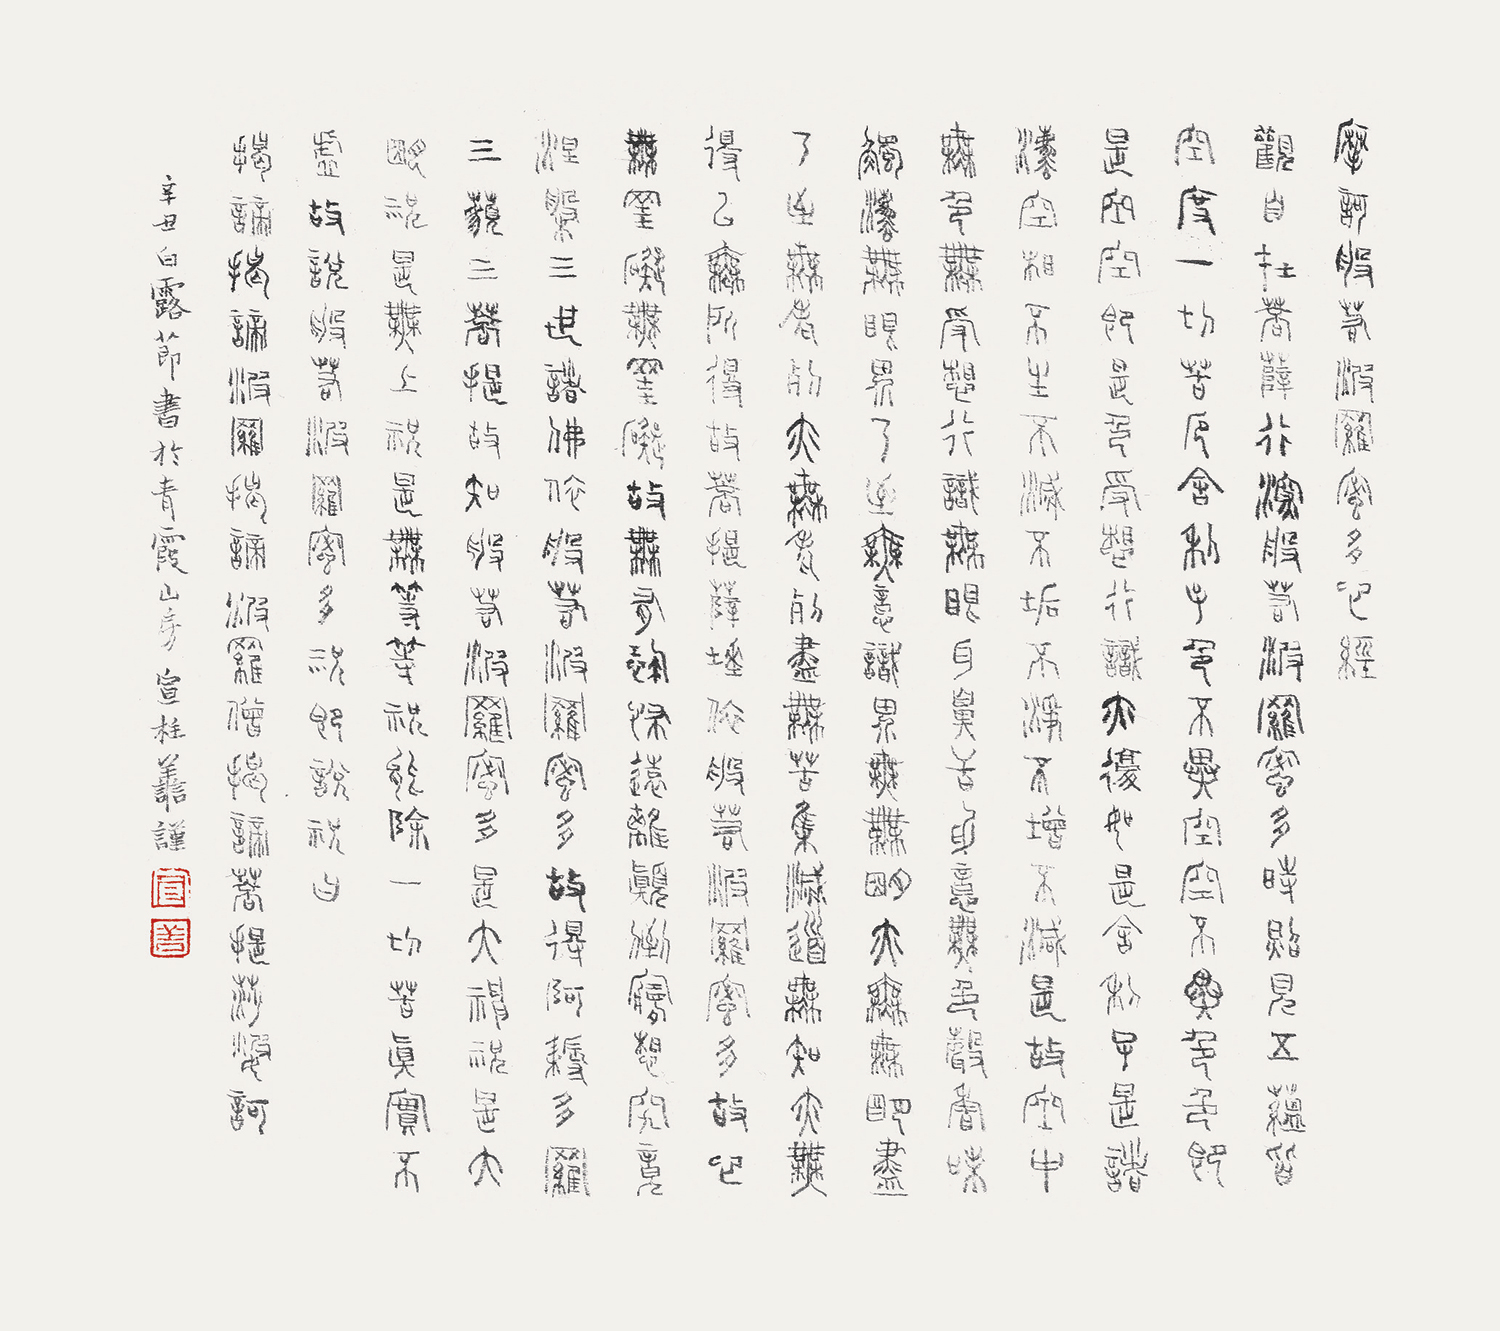 摩訶般若波羅蜜多心經
觀自在菩薩行深般若波羅蜜多時照見五蘊皆
空度一切苦厄舍利子色不異空空不異色色即
是空空即是色受想行識亦復如是舍利子是諸
法空相不生不滅不垢不淨不增不減是故空中
無色無受想行識無眼耳鼻舌身意無色聲香味
觸法無眼界乃至無意識界無無明亦無無明盡
乃至無老死亦無老死盡無苦集滅道無知亦無
得以無所得故菩提薩埵依般若波羅蜜多故心
無罣礙無罣礙故無有恐怖遠離顛倒夢想究竟
涅槃三世諸佛依般若波羅蜜多故得阿耨多羅
三藐三菩提故知般若波羅蜜多是大神咒是大
明咒是無上咒是無等等咒能除一切苦真實不
虛故說般若波羅蜜多咒即說咒曰
揭諦揭諦波羅揭諦波羅僧揭諦菩提莎婆訶
辛丑白露節書於青霞山房 宣柱善謹
宣
善